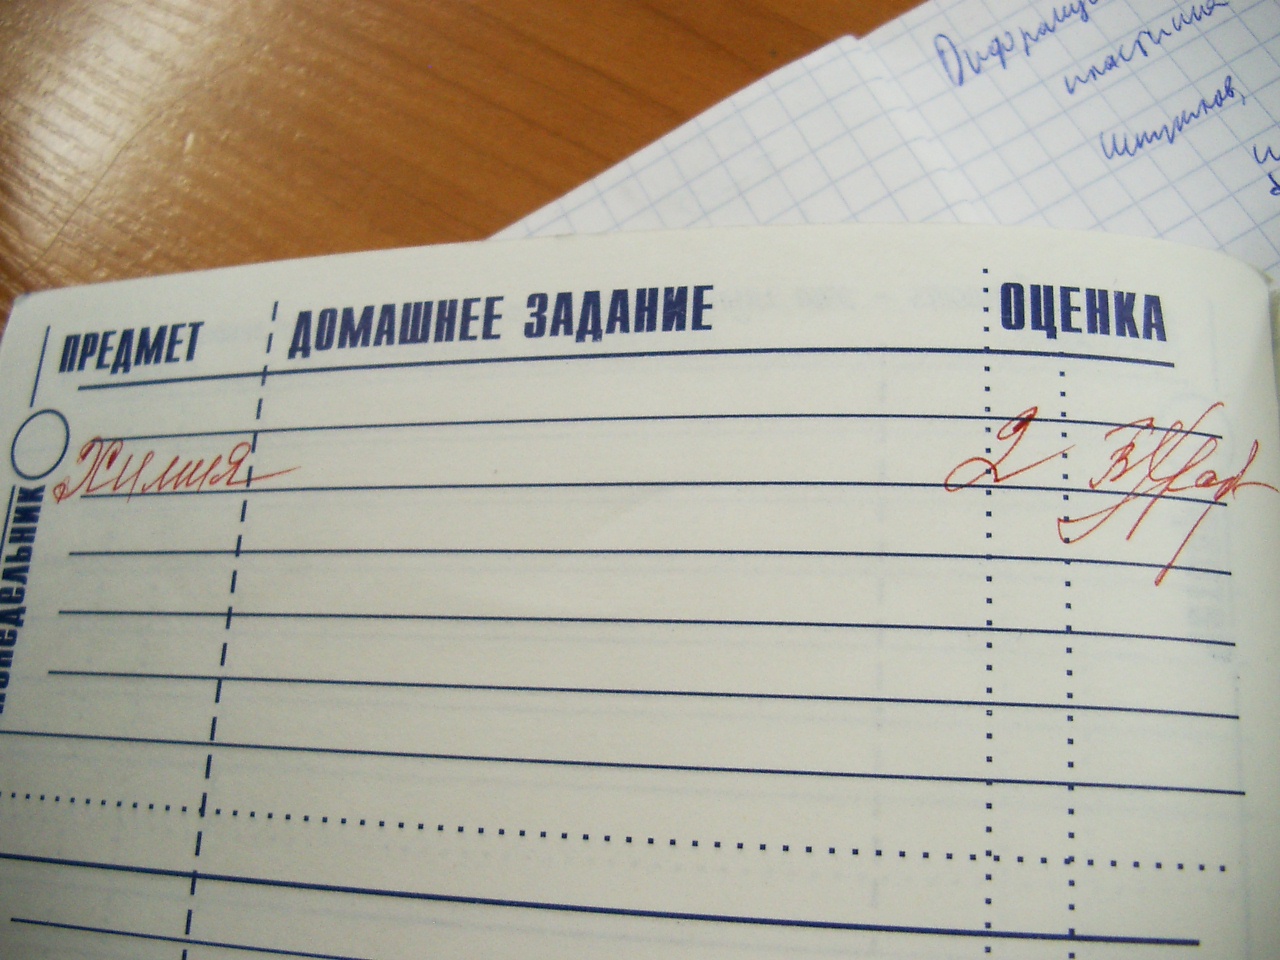 пластина
Штушков,
ПРЕДМЕТ ДОМАШНЕЕ ЗАДАНИЕ ОЦЕНКА
Химия 2
ПОНЕДЕЛЬНИК